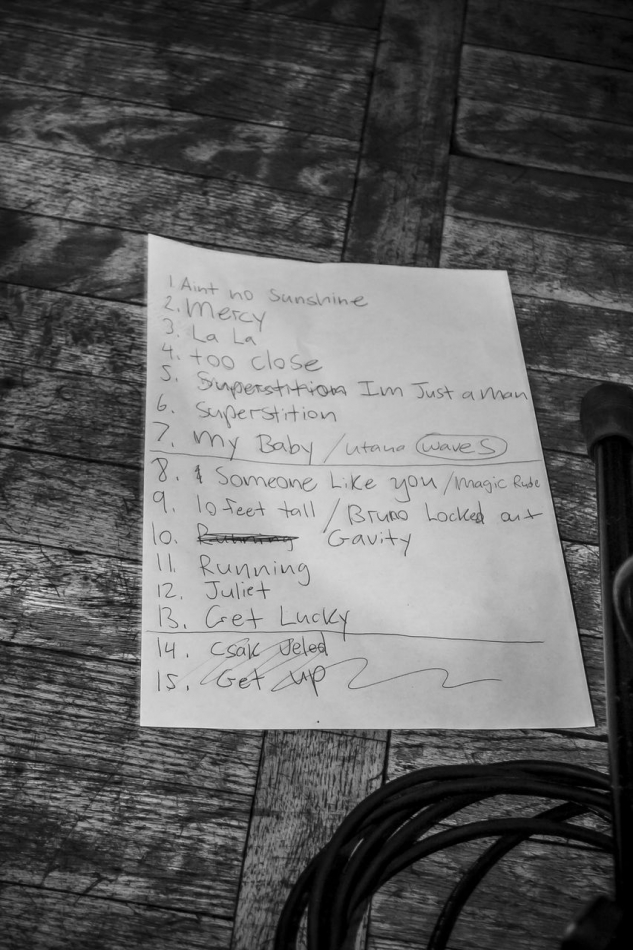 1. Aint no Sunshine
2. Mercy
3. La La
4. too close
5. Superstition Im Just a man
6. Superstition
7. My Baby / utana waves
8. Someone Like you / Magic Rude
9. 10 feet tall / Bruno Locked out
10. Running Gavity
11. Running
12. Juliet
13. Get Lucky
14. Csak Veled
15. Get up